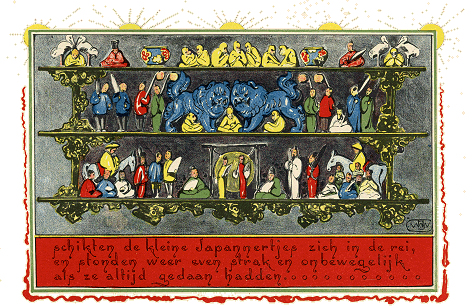 schikten de kleine Japannertjes zich in de rei,
en stonden weer even strak en onbewegelijk
als ze altijd gedaan hadden. . . . . . . . . . . .